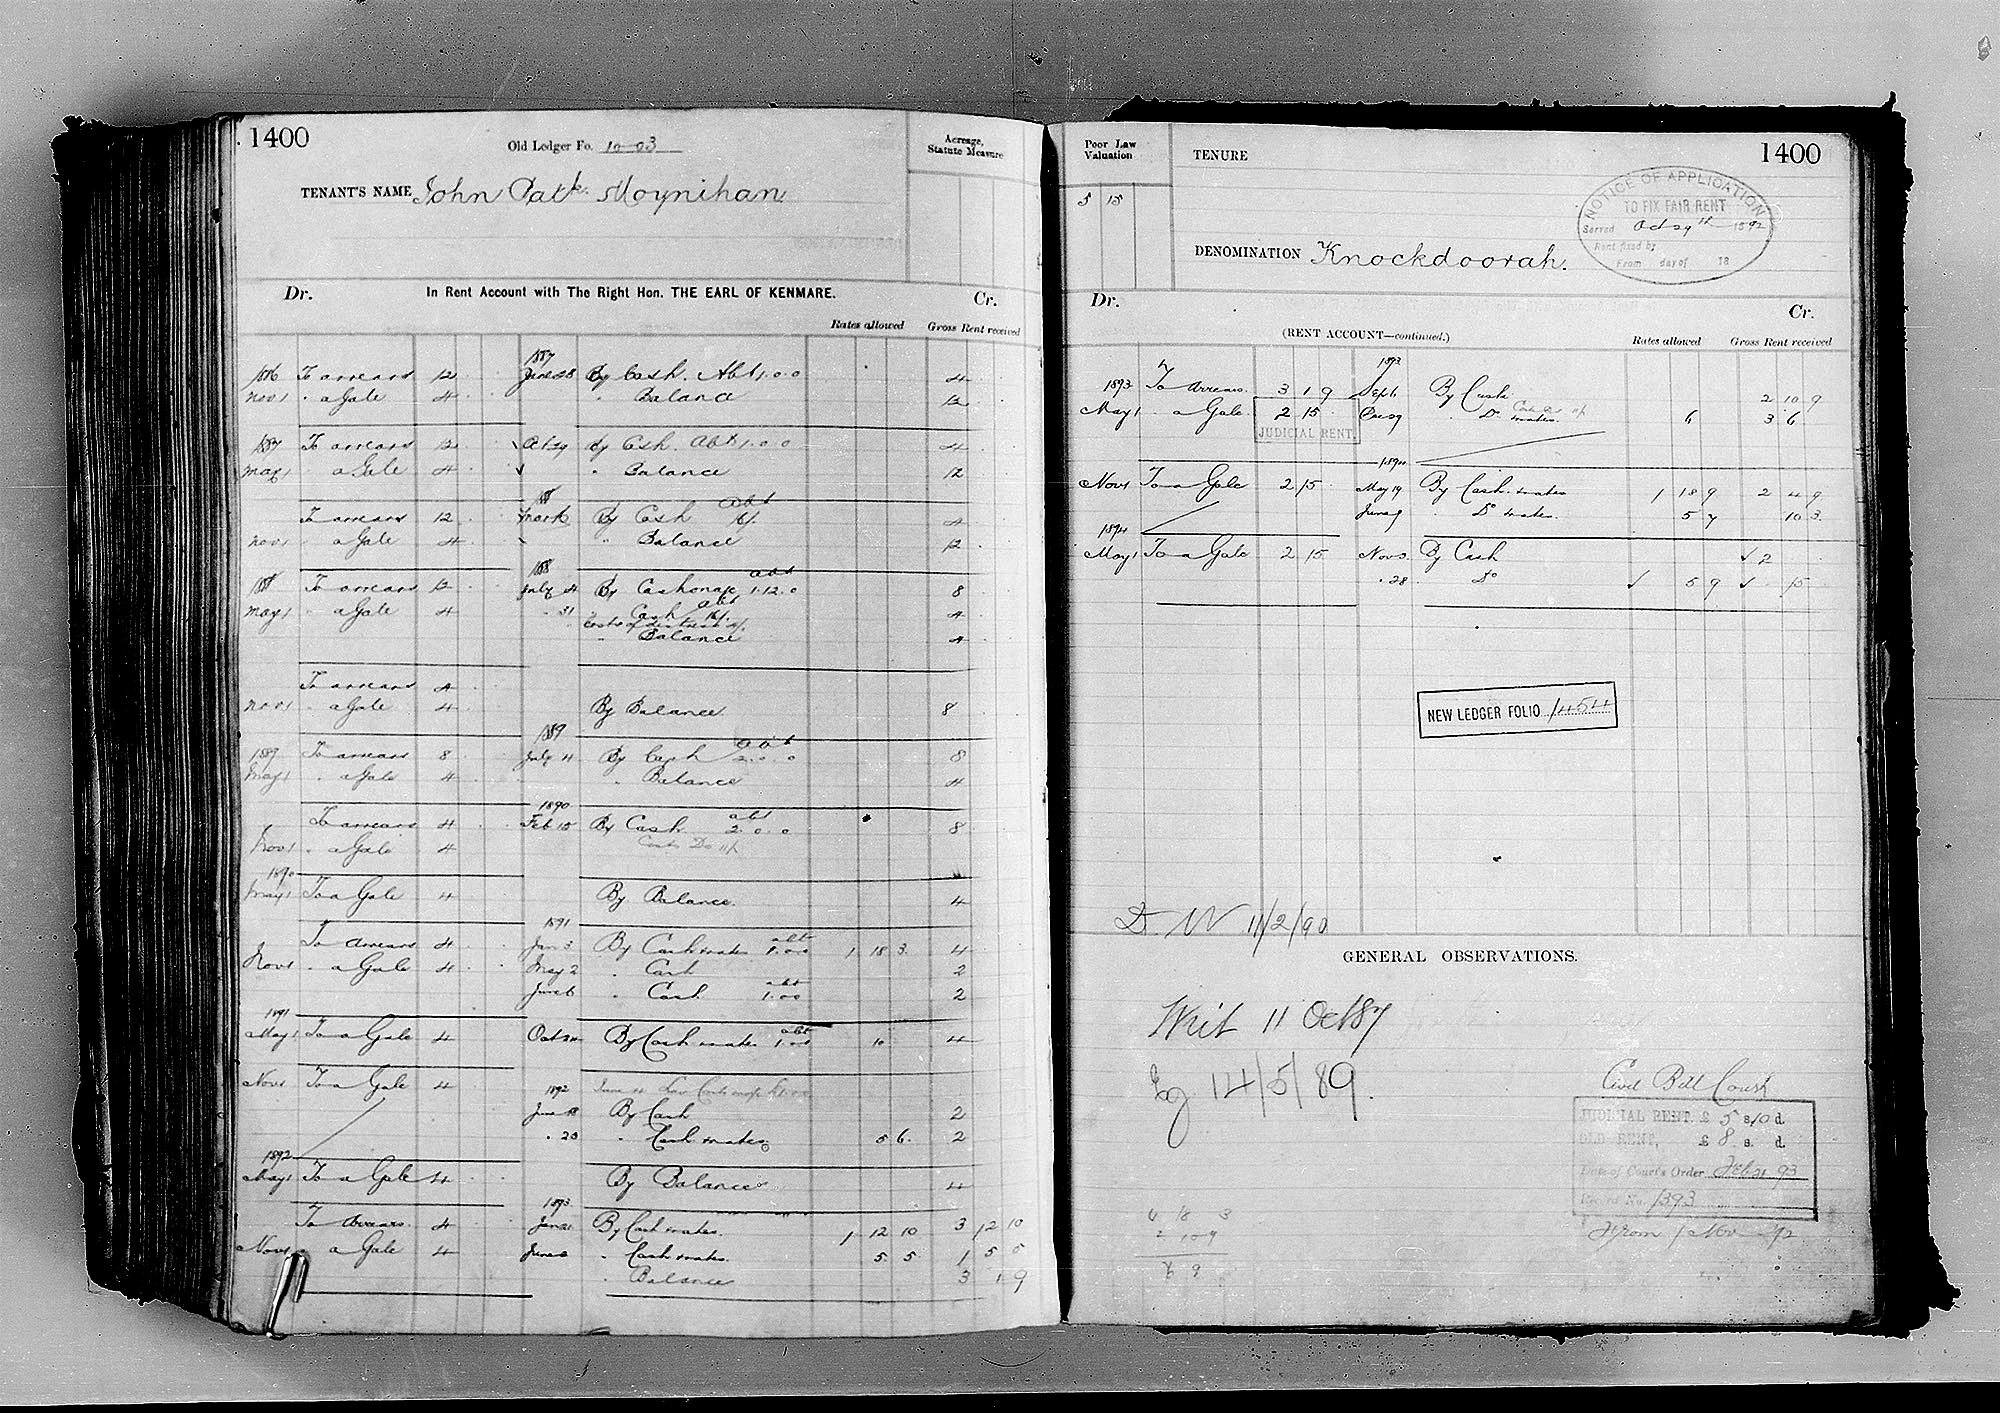 1400
Old Ledger Fo. 1003
Acreage,
Statute Measure
TENANT'S NAME John Patk. Moynihan
Dr. In Rent Account with The Right Hon. THE EARL OF KENMARE. Cr.
Rates allowed Gross Rent received
1887
1886 To arrears 12 June 28 By Cash. Abt 1.0.0 4
Nov 1 " a Gale 4 " Balance 12
1887 To arrears 12 Oct 29 By Cash. Abt 1.0.0 4
May 1 " a Gale 4 " Balance 12
abt
To arrears 12 By Cash 16/. 4
Nov 1 " a Gale 4 " Balance 12
1888 abt
1888 To arrears 12 July 4 By Cash 1.12.0 8
May 1 " a Gale 4 " 31 " Cash abt 16/. 4
Costs of
" Balance 4
To arrears 4
Nov 1 " a Gale 4 By Balance 8
1889 abt
1889 To arrears 8 July 4 By Cash 2.0.0 8
May 1 " a Gale 4 " Balance 4
1890 abt
To arrears 4 Feb 15 By Cash 2.0.0 8
Nov 1 " a Gale 4 Costs Do 11/
1890
May 1 To a Gale 4 By Balance. 4
1891 abt
To Arrears 4 Jan 3 By Cash & rates 1.0.0 1 18 3 4
Nov 1 " a Gale 4 May 2 " Cash 2
June 6 " Cash abt 1.0.0 2
1891 abt
May 1 To a Gale 4 Oct 24 By Cash & rates 1.0.0 10 4
Nov 1 To a Gale 4 1892 June 4 Law Costs
June 18 By Cash 2
" 23 " Cash & rates 5 6 2
1892
May 1 To a Gale 4 By Balance 4
1893
To Arrears. 4 Jan 21 By Cash & rates. 1 12 10 3 12 10
Nov 1 a Gale 4 June 2 " Cash & rates. 5 5 1 5 5
" Balance 3 1 9
Poor Law
Valuation
TENURE
1400
5 15
NOTICE OF APPLICATION
TO FIX FAIR RENT
Served Oct 29th 1892
Rent fixed by
From day of 18
DENOMINATION Knockdoorah.
Dr. Cr.
(RENT ACCOUNT—continued.) Rates allowed Gross Rent received
1893
1893 To Arrears. 3 1 9 Sept 1 By Cash 2 10 9
May 1 " a Gale 2 15 Dec 29 " Do & rates. 6 3 6
JUDICIAL RENT.
1894
Nov 1 To a Gale 2 15 May 19 By Cash & rates 1 18 9 2 4 9
June 9 Do & rates. 5 7 10 3
1894
May 1 To a Gale 2 15 Nov 3 By Cash 2
" 28 Do 5 9 15
NEW LEDGER FOLIO 1454
D. W 11/2/90
GENERAL OBSERVATIONS.
Writ 11 Oct 87
14/5/89.
Civil Bill Court
JUDICIAL RENT. £ 5 s 10 d.
OLD RENT, £ 8 s. d.
Date of Court's Order Feb 21 93
Record No. 1393
From 1 Nov 92
6 18 3
2 10 9
6 9